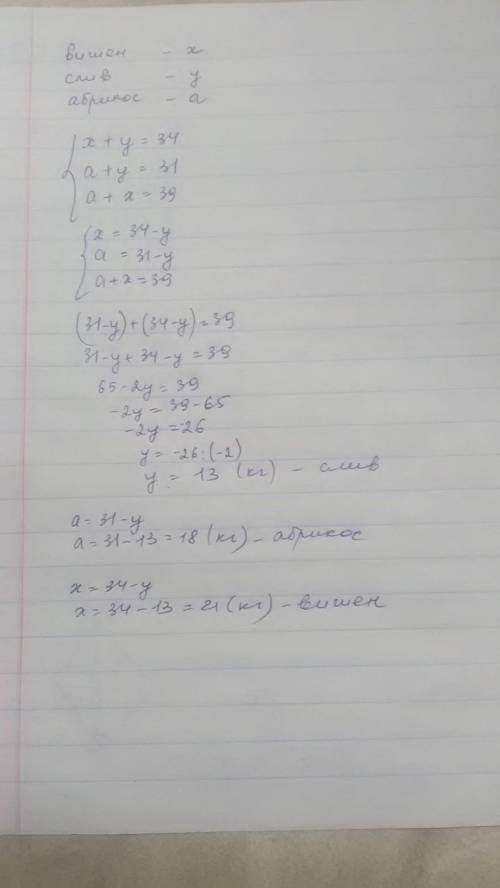 вишен - x
слив - y
абрикос - a
x + y = 34
a + y = 31
a + x = 39
x = 34-y
a = 31-y
a+x=39
(31-y)+(34-y)=39
31-y+34-y=39
65-2y=39
-2y=39-65
-2y=-26
y=-26:(-2)
y = 13 (кг) - слив
a=31-y
a=31-13=18(кг)-абрикос
x=34-y
x=34-13=21(кг)-вишен